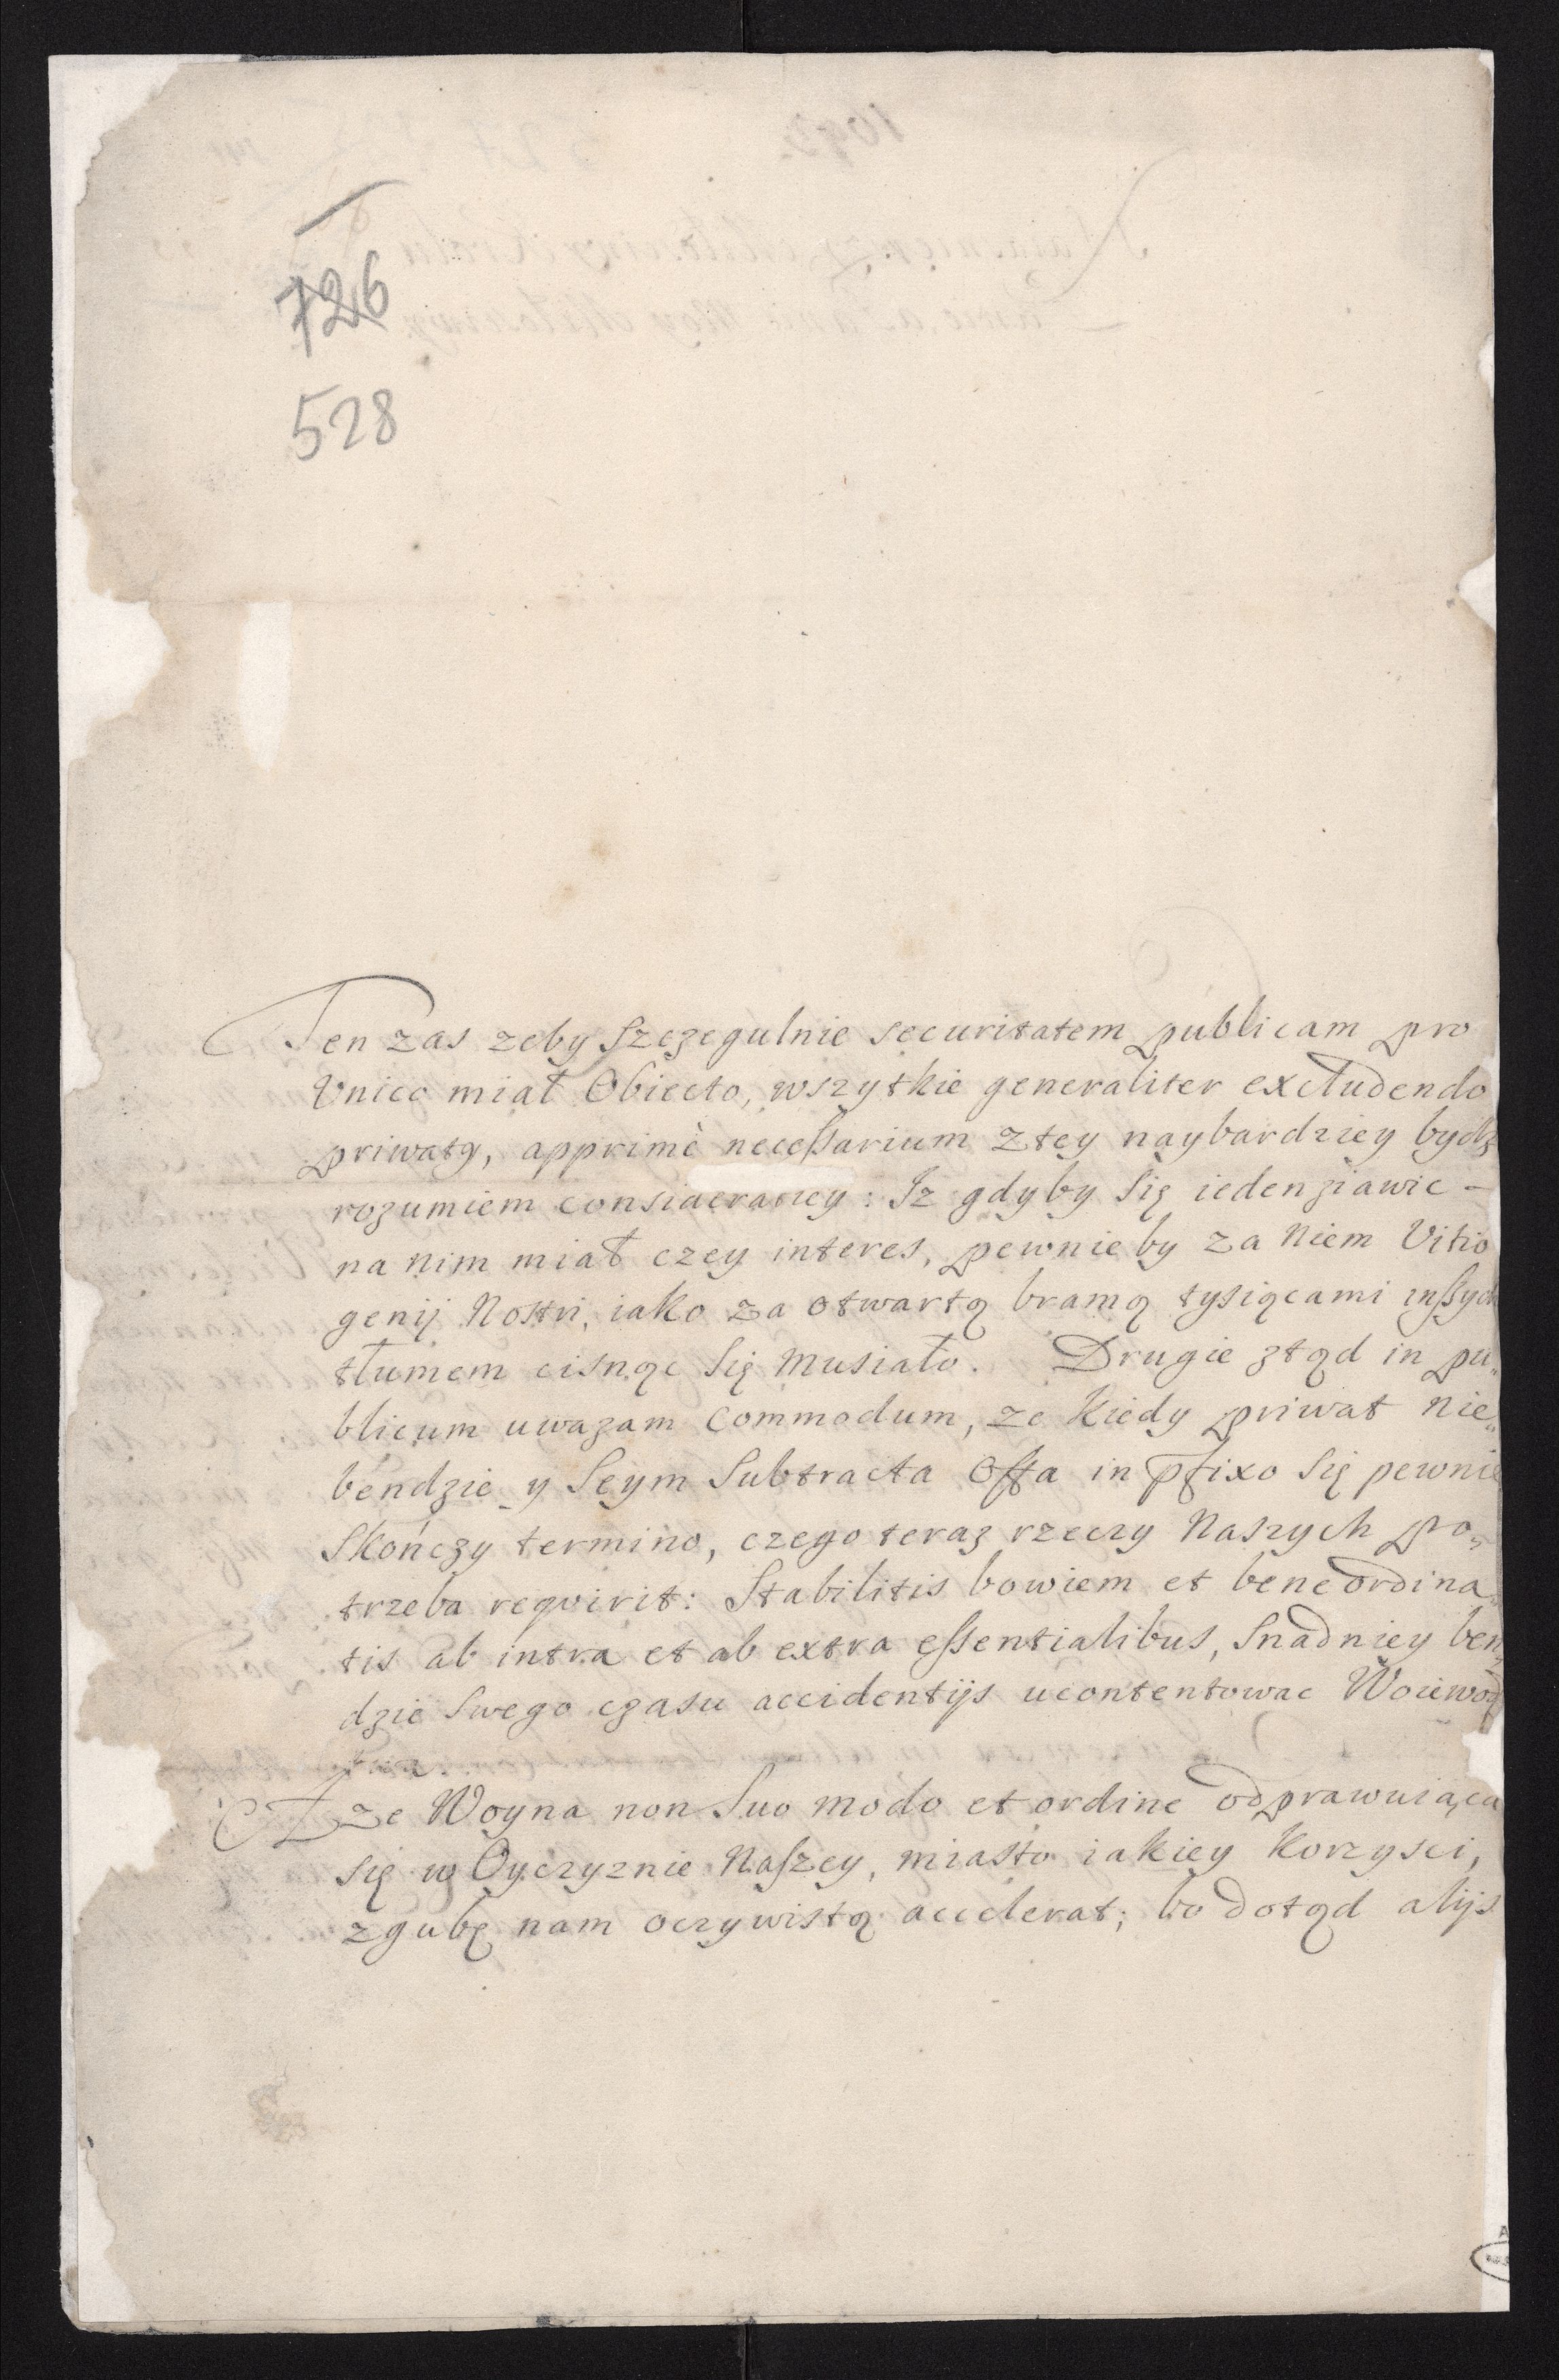 726
528
Ten zas zeby szczegulnie securitatem publicam pro
Vnico miał Obiecto, wszytkie generaliter excludendo
priwaty, apprimè necessarium z tey naybardziey bydz
rozumiem consideratiey: Iz gdyby się ieden ziawic –
na nim miał czey interes, pewnie by za niem Vitio
genij Nostri, iako za otwartą bramą tysiącami inszych
tłumem cisnąc się musiało. Drugie ztąd in pu„
blicum uwazam Commodum, ze kiedy priwat nie„
bendzie y Seym Subtracta Offa in pfixo się pewnie
Skończy termino, czego teraz rzeczy Naszych po„
trzeba reqvirit: Stabilitis bowiem et bene ordina„
tis ab intra et ab extra essentialibus, Snadniey ben„
dzie Swego czasu accidentijs ucontentowac Woiewodz
twa.
Ze Woyna non Suo modo et ordine odprawuiąca
się w Oyczyznie Naszey, miasto iakiey korzysci,
zgubę nam oczywistą accelerat; bo dotąd alijs